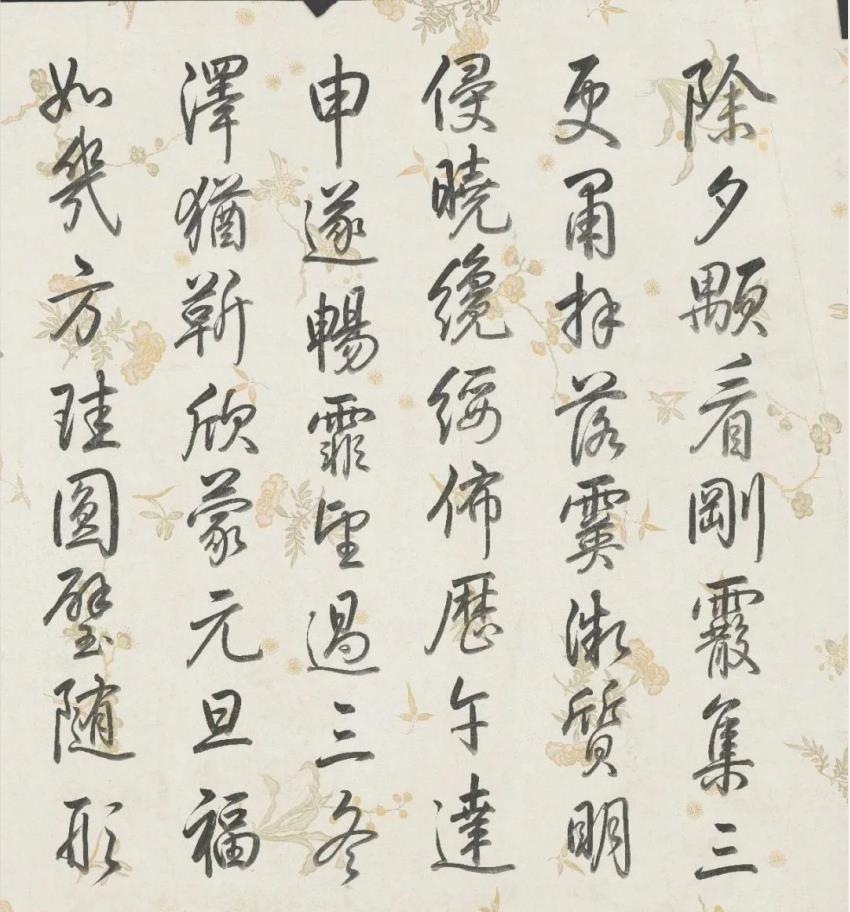 除夕顒看剛霰集三
更甫拜落霙微質明
侵曉纔綏佈歷午達
申遂暢霏望過三冬
澤猶靳欣蒙元旦福
如幾方珪圓璧隨形